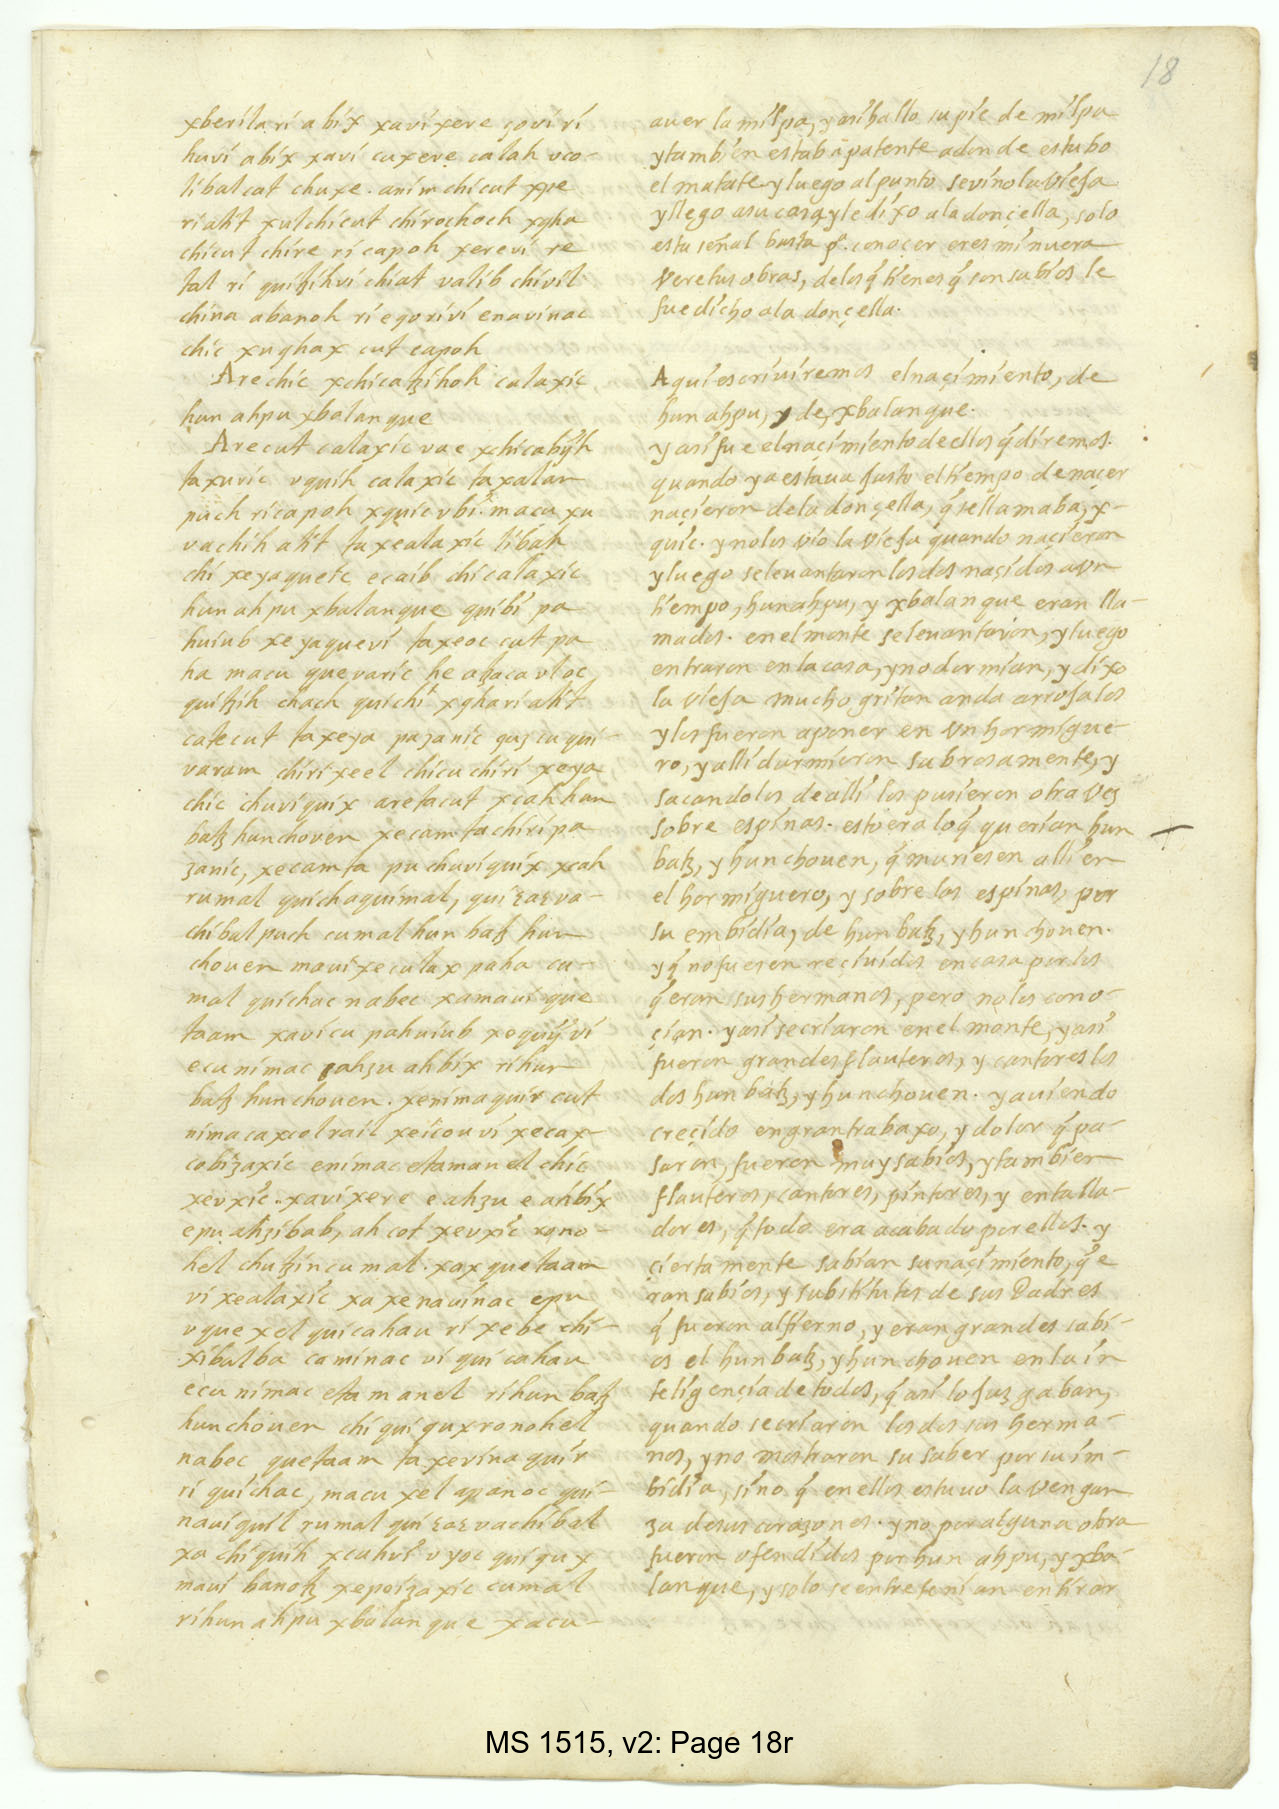 18
xberila ri abix xavi xere çovi ri
huvi abix xavi cu xere calah uco-
libal cat chuxe. anim chicut xpe
ri atit xulchicut chirochoch xqha
chicut chire ri capoh xerevi re
tal ri quitzihvi chiat valib chivil
china abanoh ri eqo rivi enavinac
chic xuqhax cut capoh
Are chic xchicatzihoh calaxic
hun ahpu xbalanque
Arecut calaxic vae xchicabijh
taxuric uquih calaxic taxalan
puch ri capoh xquic ubi. macu xu
vachih atit taxealaxic libah
chi xeyaquetc ecaib chi calaxic
hun ahpu xbalanque quibi pa
huiub xeyaquevi taxeoc cut pa
ha macu quevaric he atzaca uloc
quitzih chach quichi xqha ri atit
catecut taxeya pa zanic quz cu qui-
varam chiri xeel chicu chiri xeya
chic chuvi quix aretacut xcah hun
batz hunchoven xecam ta chiri pa
zanic, xecam ta pu chuvi quix xcah
rumal quichaquimal, qui εaε va-
chibal puch cumal hun batz hun
chouen maui xeculax paha cu-
mal quichac nabec xamaui que
taam xavicu pahuiub xequiy vi
ecu nimac ahzu ahbix ri hun
batz hunchouen. xenimaquir cut
nima caxcol rail xeicou vi xecax-
cobizaxic enimac etamanel chic
xeuxic. xavi xere e ahzu e ahbix
epu ahzibab, ahcot xeuxic xqno-
hel chutzin cumal. xax quetaam
vi xealaxic xa xenavinac epu
uquexel quicahau ri xebe chi-
xibalba caminac vi qui cahau
ecu nimac etamanel ri hun batz
hunchouen chi quiqux ronohel
nabec quetaam taxevinaquir
ri quichac, macu xel apanoc qui-
naviquil rumal qui εaε vachibal
xa chiquih xcuhvi uyoc quiqux
mavi banotz xepoizaxic cumal
ri hun ahpu xbalanque xacu-
auer la milpa, y asi hallo su pie de milpa
y tambien estaba patente adonde estubo
el matate y luego al punto se vino la vieja
y llego asu casa, y le dixo a la donçella, solo
esta señal basta p.ᵃ conocer eres mi nuera
Vere tus obras, de los q̃ tienes q̃ son sabios le
fue dicho a la donçella.
Aqui escriviremos el naçimiento, de
hun ahpu, y de, xbalanque.
y asi fue el naçimiento de ellos q̃ diremos.
quando ya estaua justo el tiempo de nacer
naçieron de la donçella, q̃ se llamaba, x-
quic. y no los vio la vieja quando naçieron
y luego se leuantaron los dos naçidos a vn
tiempo, hun ahpu, y xbalanque eran lla-
mados. en el monte se leuantaron, y luego
entraron en la casa, y no dormian, y dixo
la vieja mucho gritan anda arrojalos
y los fueron aponer en vn hormigue-
ro, y alli durmieron sabrosamente, y
sacandolos de alli los pusieron otra vez
sobre espinas. esto era lo q̃ querian hun
batz, y hunchouen, q̃ muriesen alli en
el hormiguero, y sobre las espinas, por
su embidia, de hun batz, y hun chouen.
y q̃ no fuesen reçiuidos en casa por los
q̃ eran sus hermanos, pero no los cono-
çian. y asi se criaron en el monte, y asi
fueron grandes flauteros, y cantores los
dos hun batz, y hunchouen. y auiendo
creçido en gran trabaxo, y dolor q̃ pa-
saron, fueron muy sabios, y tambien
flauteros, cantores, pintores, y entalla-
dores, q̃ todo era acabado por ellos. y
çiertamente sabian su naçimiento, q̃ e
ran sabios, y substitutos de sus Padres
q̃ fueron al fierno, y eran grandes sabi-
os el hun batz, y hun chouen en la in
teligençia de todos, q̃ asi lo juzgaban,
quando se criaron los dos sus herma-
nos, y no mostraron su saber por su im-
bidia, sino q̃ en ellos estuuo la vengan
za de sus corazones. y no por alguna obra
fueron ofendidos por hun ahpu, y xba-
lanque, y solo se entretenian en tirar
MS 1515, v2: Page 18r